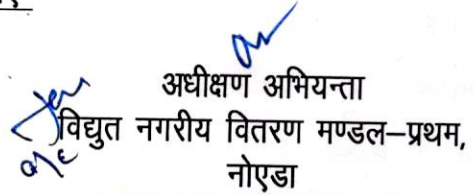 अधीक्षण अभियन्ता
विद्युत नगरीय वितरण मण्डल–प्रथम,
नोएडा